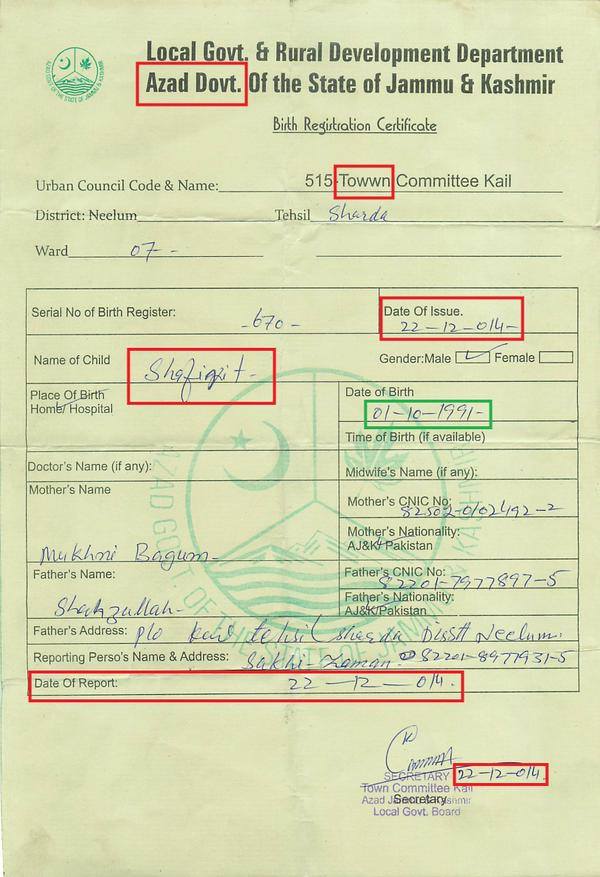 Local Govt. & Rural Development Department
Azad Dovt. Of the State of Jammu & Kashmir
Birth Registration Certificate
Urban Council Code & Name: 515-Towwn Committee Kail
District: Neelum Tehsil Sharda
Ward 07-
Serial No of Birth Register: -670-
Date Of Issue.
22-12-014-
Name of Child Shafiqit-
Gender:Male Female
Place Of Birth
Home/ Hospital
Date of Birth
01-10-1991-
Time of Birth (if available)
Doctor's Name (if any):
Midwife's Name (if any):
Mother's Name
Mukhni Bagum-
Mother's CNIC No:
82502-0102492-2
Mother's Nationality:
AJ&K/ Pakistan
Father's Name:
Shahzullah-
Father's CNIC No:
82201-7977897-5
Father's Nationality:
AJ&K/Pakistan
Father's Address: P/o Kail tehsil sharda Disstt Neelum.
Reporting Perso's Name & Address: Sakhi-Zaman. 82201-8977931-5
Date Of Report: 22-12-014.
22-12-014.
SECRETARY
Town Committee Kail
Azad Jammu & Kashmir
Secretary
Local Govt. Board
AZAD GOVT. OF THE STATE OF JAMMU & KASHMIR